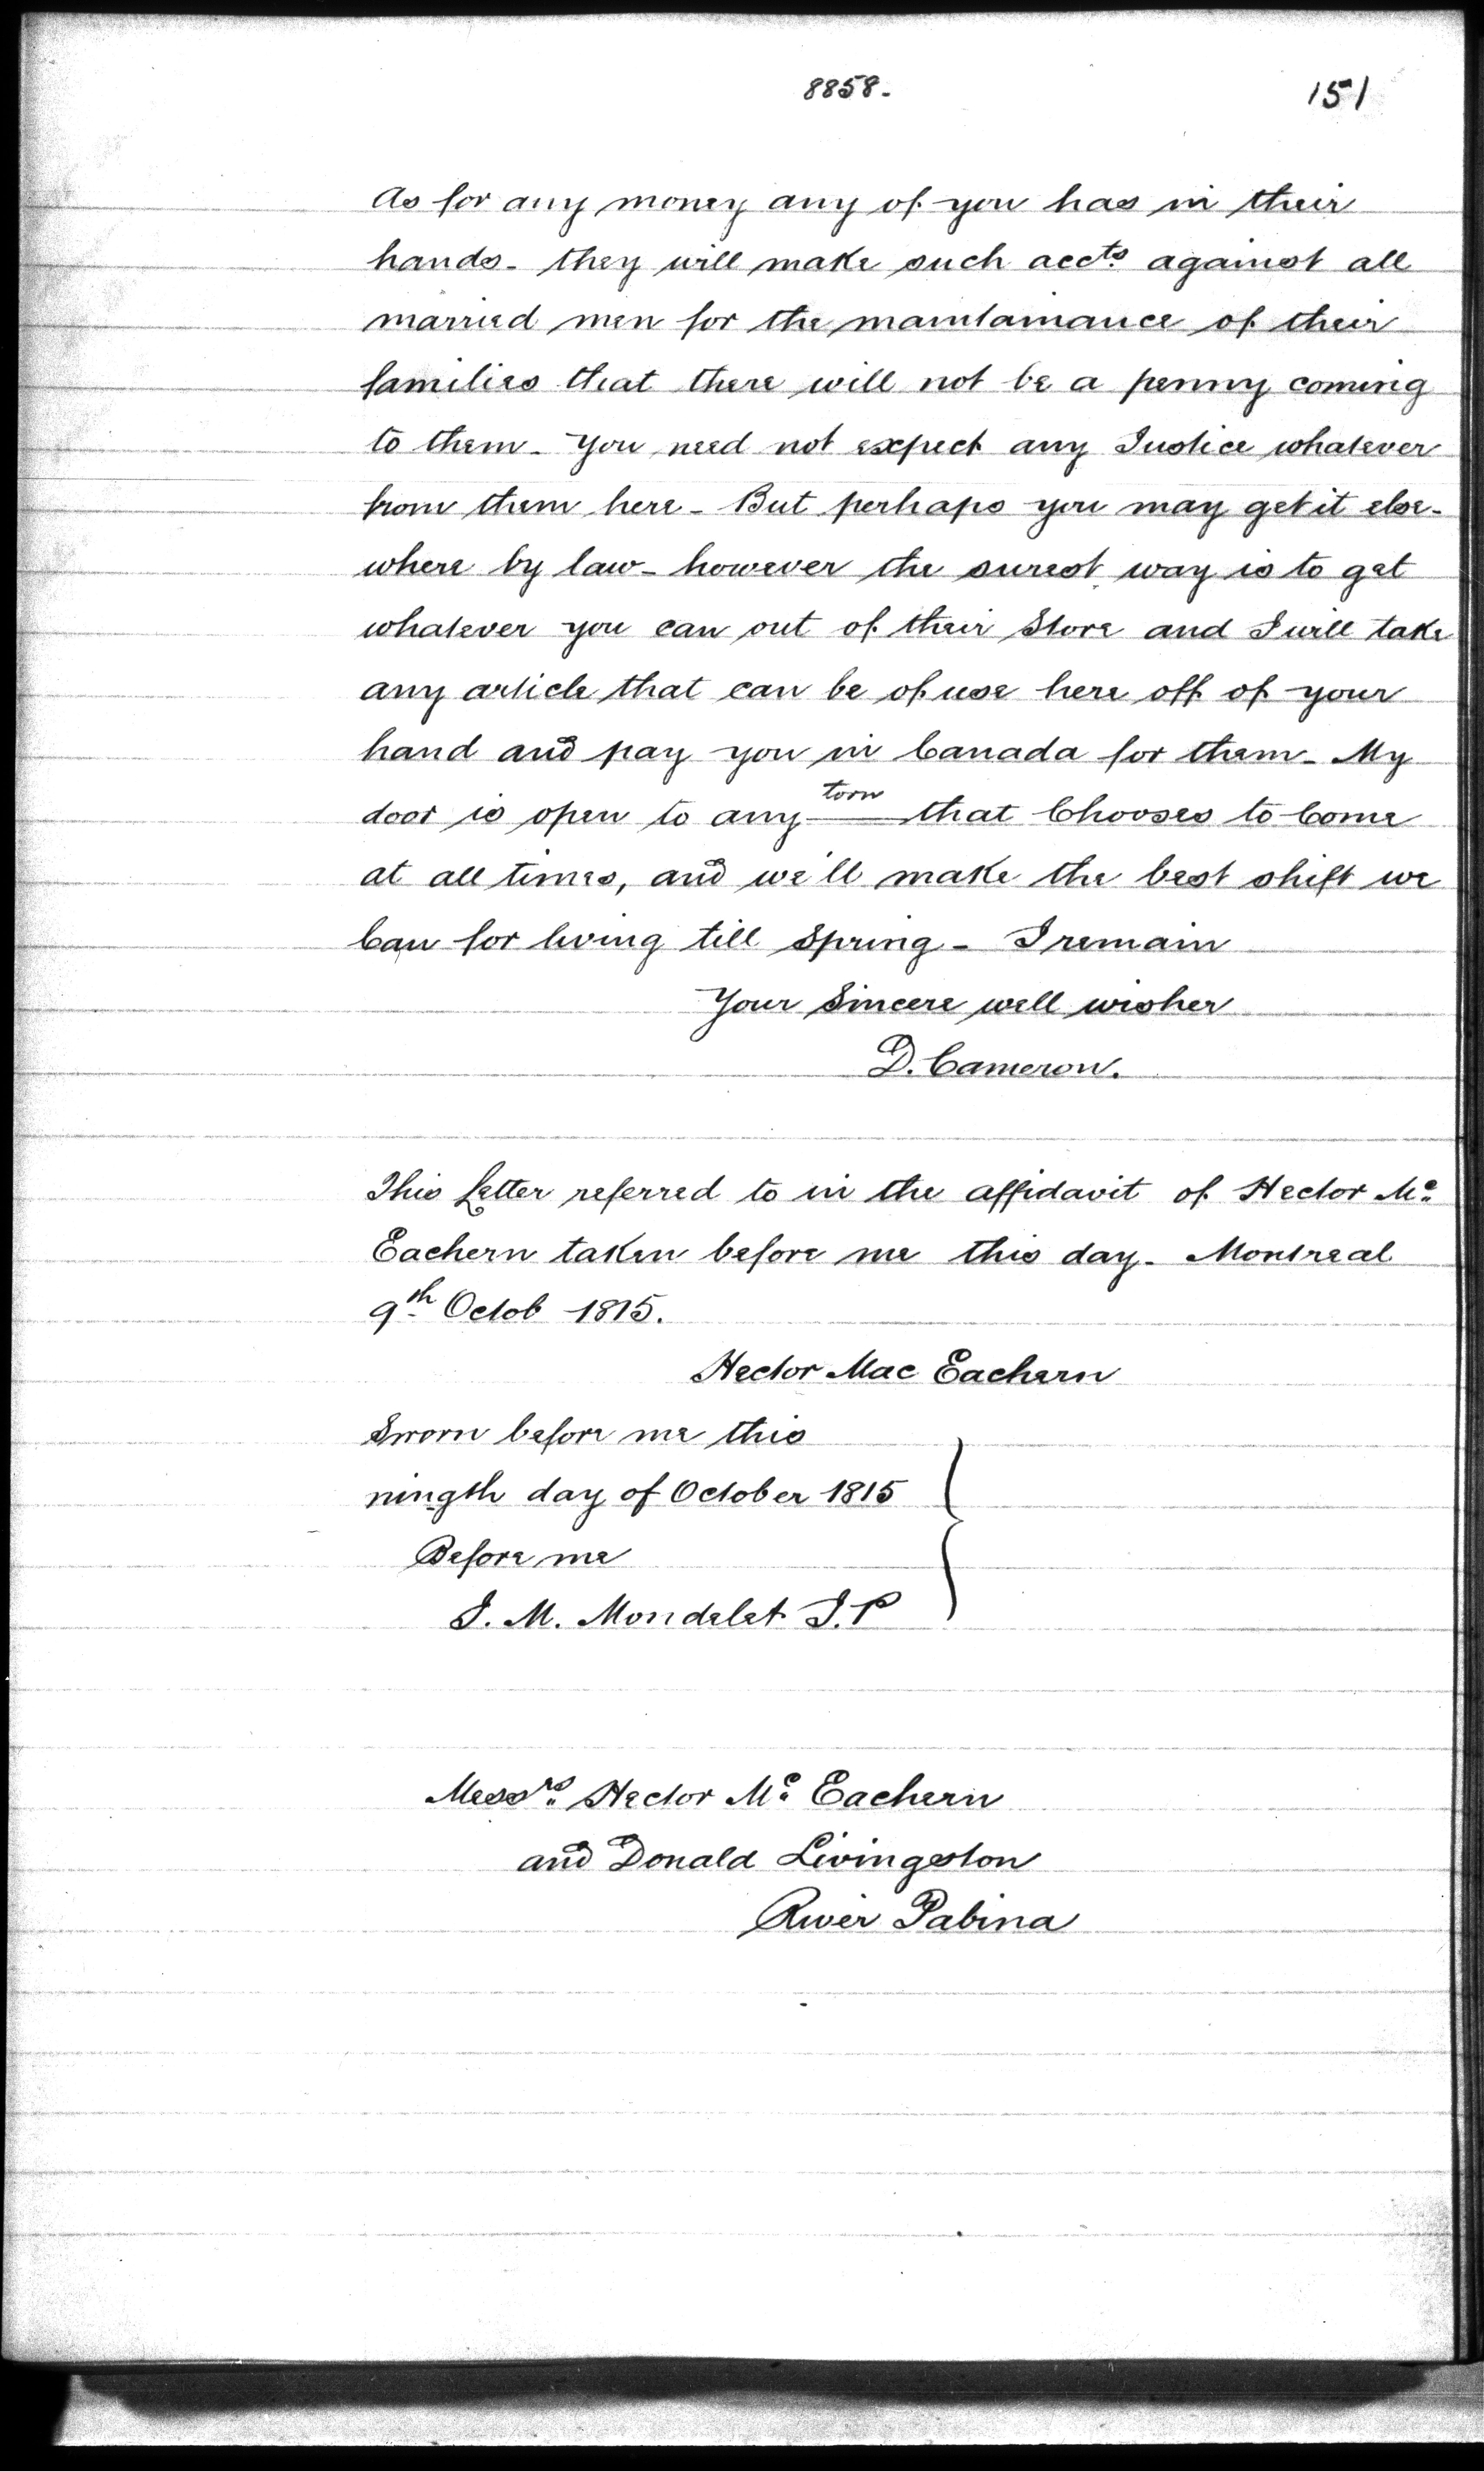 8858.
151
As for any money any of you has in their
hands - they will make such accts. against all
married men for the maintainance of their
families that there will not be a penny coming
to them - You need not expect any Justice whatever
from them here - But perhaps you may get it else-
where by law - however the surest way is to get
whatever you can out of their Store and I will take
any article that can be of use here off of your
hand and pay you in Canada for them - My
door is open to any torn that Chooses to Come
at all times, and we'll make the best shift we
Can for living till Spring - I remain
Your Sincere well wisher
D. Cameron.
This Letter referred to in the affidavit of Hector Mc
Eachern taken before me this day - Montreal
9th Octob 1815.
Hector Mac Eachern
Sworn before me this
ningth day of October 1815
Before me
J. M. Mondelet J.P
Messrs. Hector Mc Eachern
and Donald Livingston
River Pabina